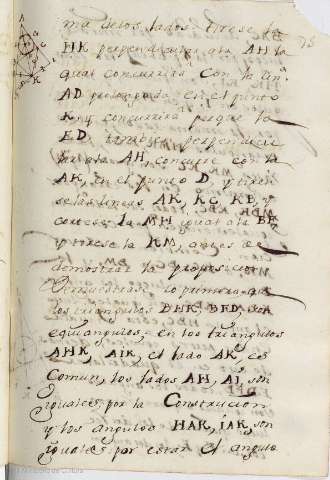 ma de los lados tirese la
HK perpendicular ala AH la
qual concurrira con la lin.
AD prolongada en el punto
K y concurrira porque la
ED, tambien perpendicu
lar ala AH, concurre con la
AK, en el punto D, y tiren
se las lineas AK, KC, KB, y
cortese la MH igual ala BF,
y tirese la KM, antes de
demostrar la proposicion
Demuestrase lo primero que
los triangulos BHK, BFD, son
equiangulos, en los triangulos
AHK, AIK, el lado AK es
Comun, los lados AH, AI, son
yguales por la Construcion
y los angulos HAK, IAK, son
yguales por estar el angulo